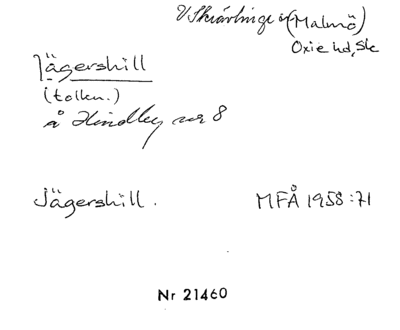 V Skrävlinge sn (Malmö)
Oxie hd, Sk
Jägershill
(tolkn.)
å Hindby nr 8
Jägershill.
MFÅ 1958:71
Nr 21460